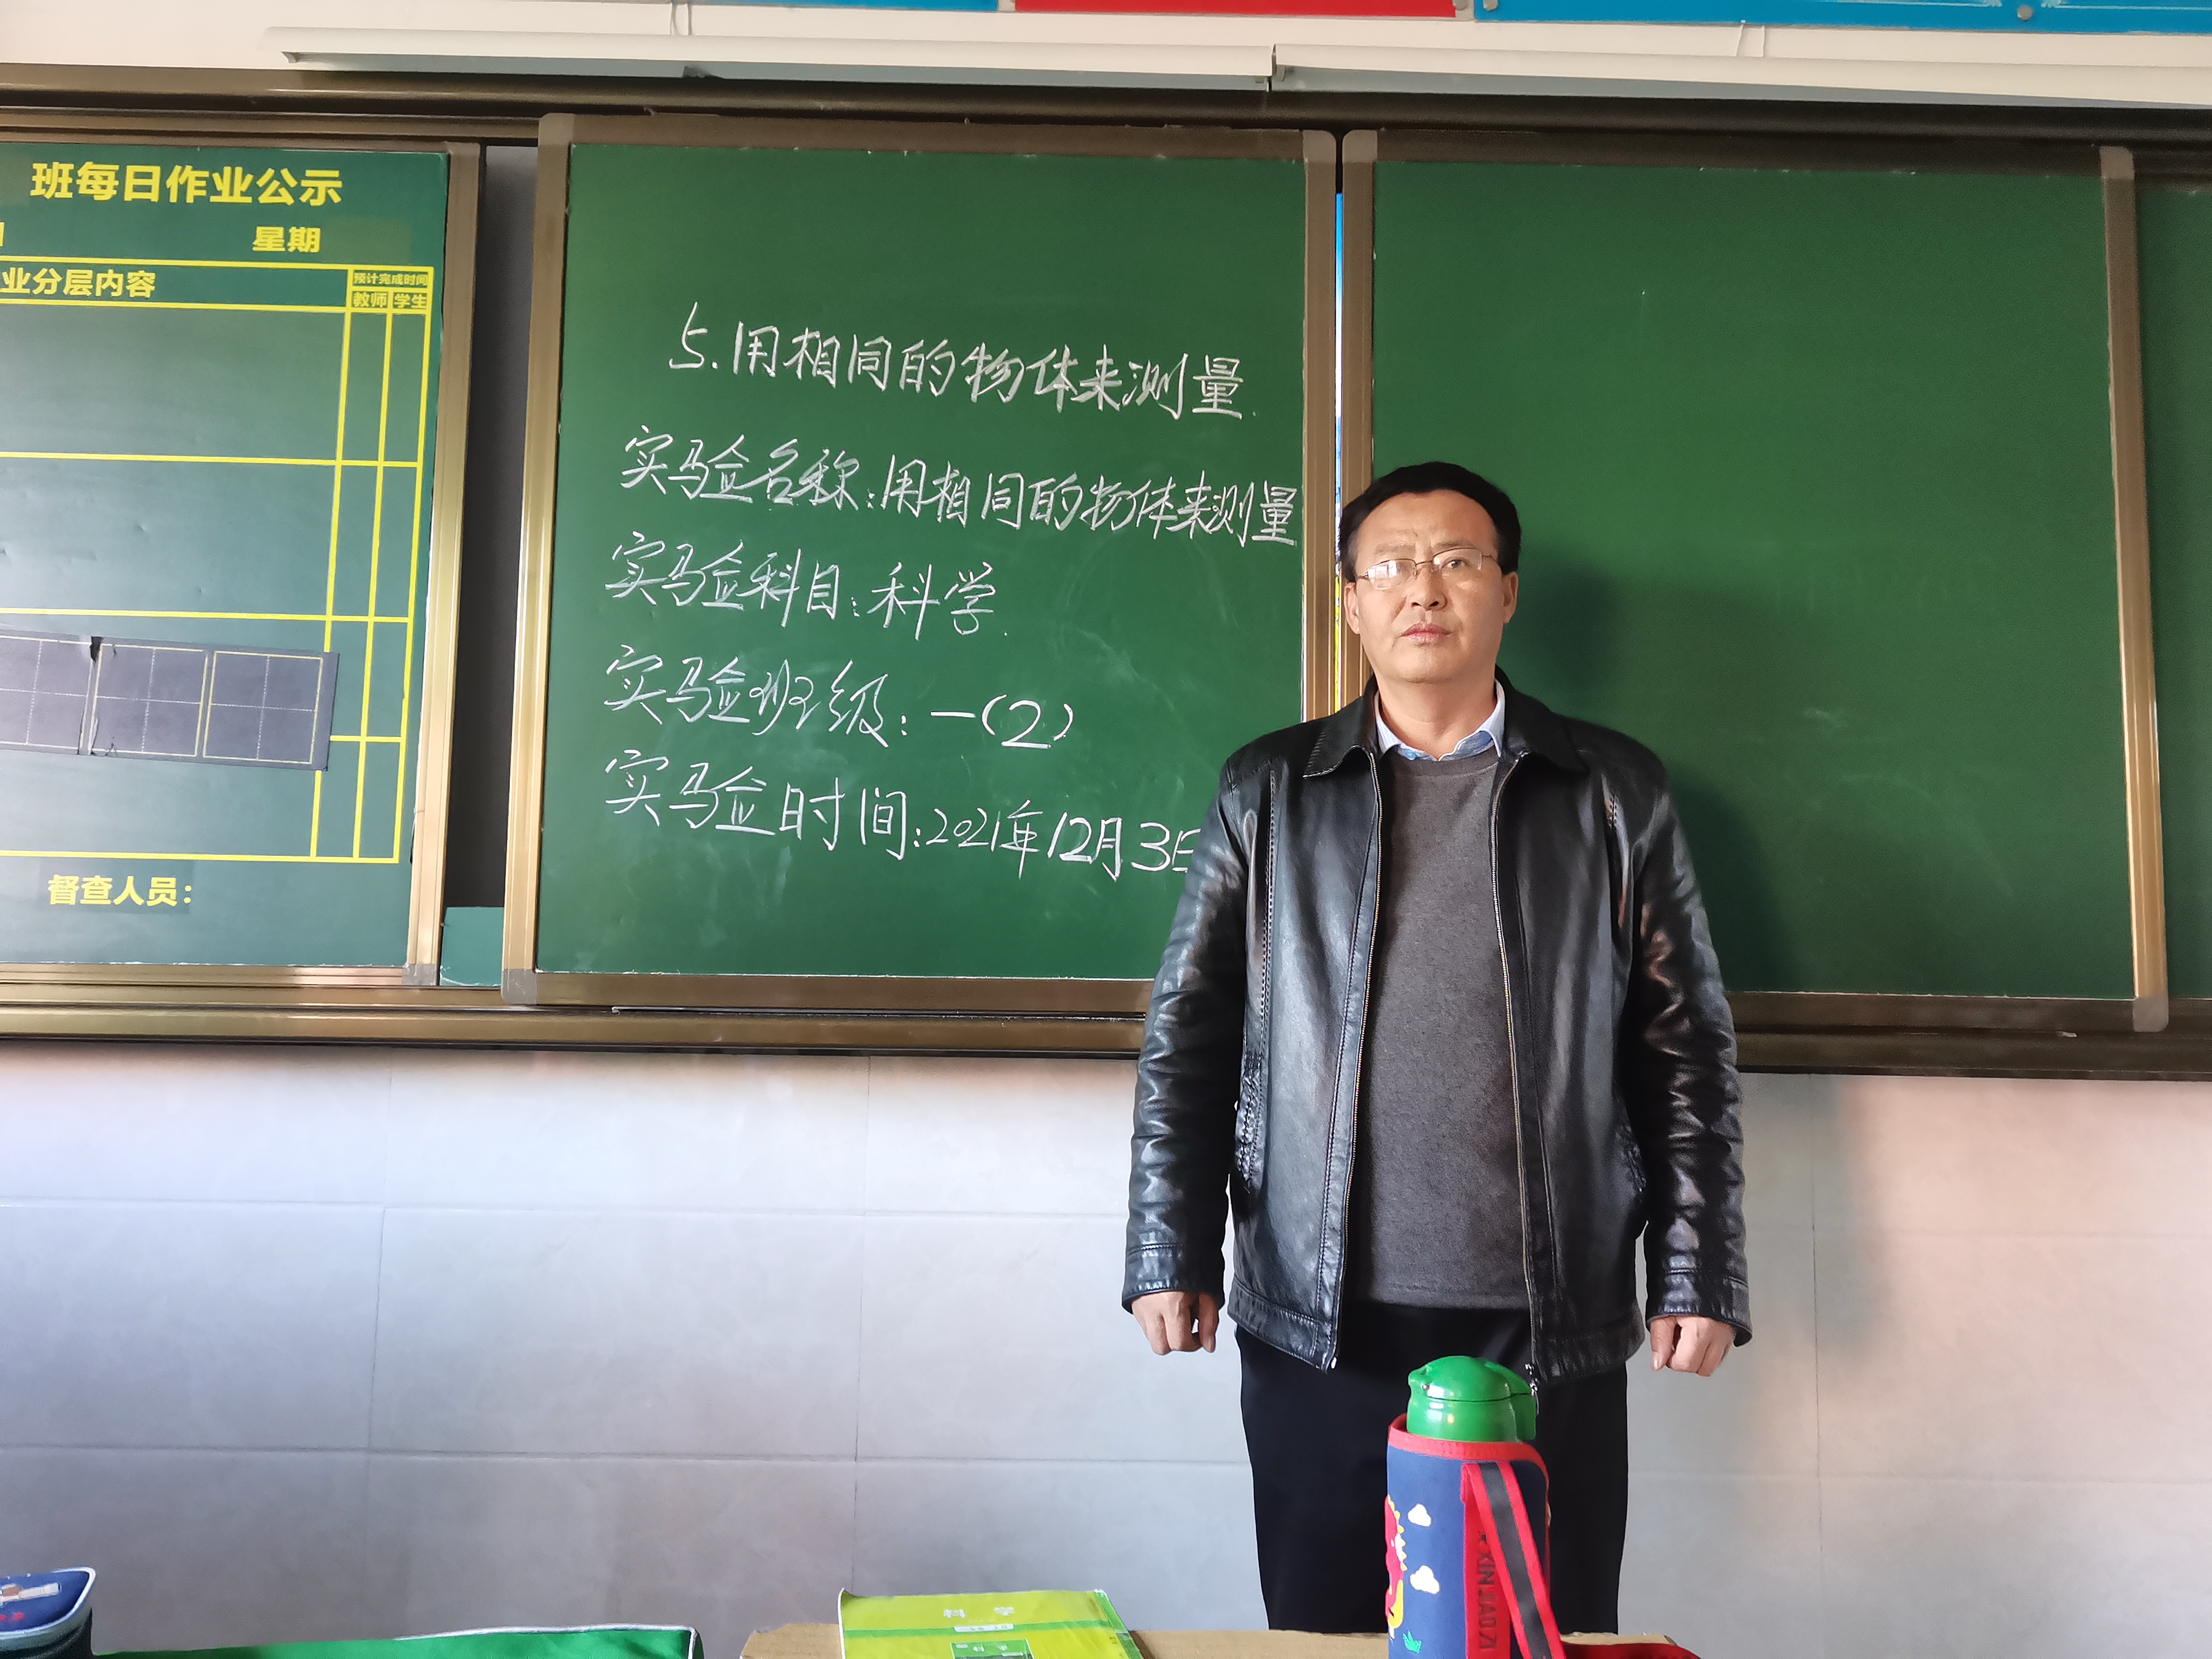 班每日作业公示
星期
业分层内容
预计完成时间
教师 学生
督查人员：
5.用相同的物体来测量.
实验名称：用相同的物体来测量
实验科目：科学.
实验班级：一（2）
实验时间：2021年12月3日
科学
XINJIAOZI